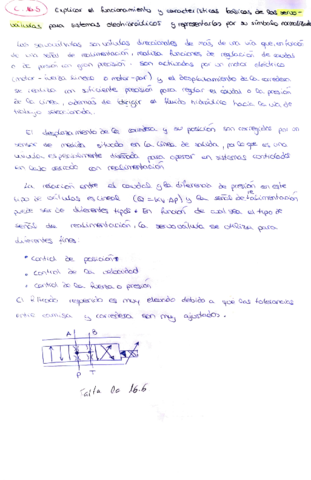 C. 16.3 Explicar el funcionamiento y características básicas de las servo-
válvulas para sistemas electrohidráulicos y representarlas por su símbolo normalizado
Las servoválvulas son válvulas direccionales de más de una vía que, en función
de una señal de realimentación, realiza funciones de regulación de caudal
o de presión con gran precisión. Son actuadas por un motor eléctrico
y el desplazamiento de la corredera
se realiza con suficiente precisión para regular el caudal o la presión
de la línea, además de dirigir el fluido hidráulico hacia la vía de
trabajo seleccionada.
El desplazamiento de la corredera y su posición son corregidos por un
sensor de medida situado en la línea de salida, por lo que es una
válvula especialmente diseñada para operar en sistemas controlados
en lazo cerrado con realimentación
La relación entre el caudal y la diferencia de presión en este
tipo de válvulas es lineal y la señal de realimentación
puede ser de diferentes tipos. En función de cual sea el tipo de
señal de realimentación, la servoválvula se utiliza para
diferentes fines:
• control de posición
• control de la velocidad
• control de la fuerza o presión
El filtrado requerido es muy elevado debido a que las tolerancias
entre camisa y corredera son muy ajustadas.
A B
P T
Falta la 16.6.